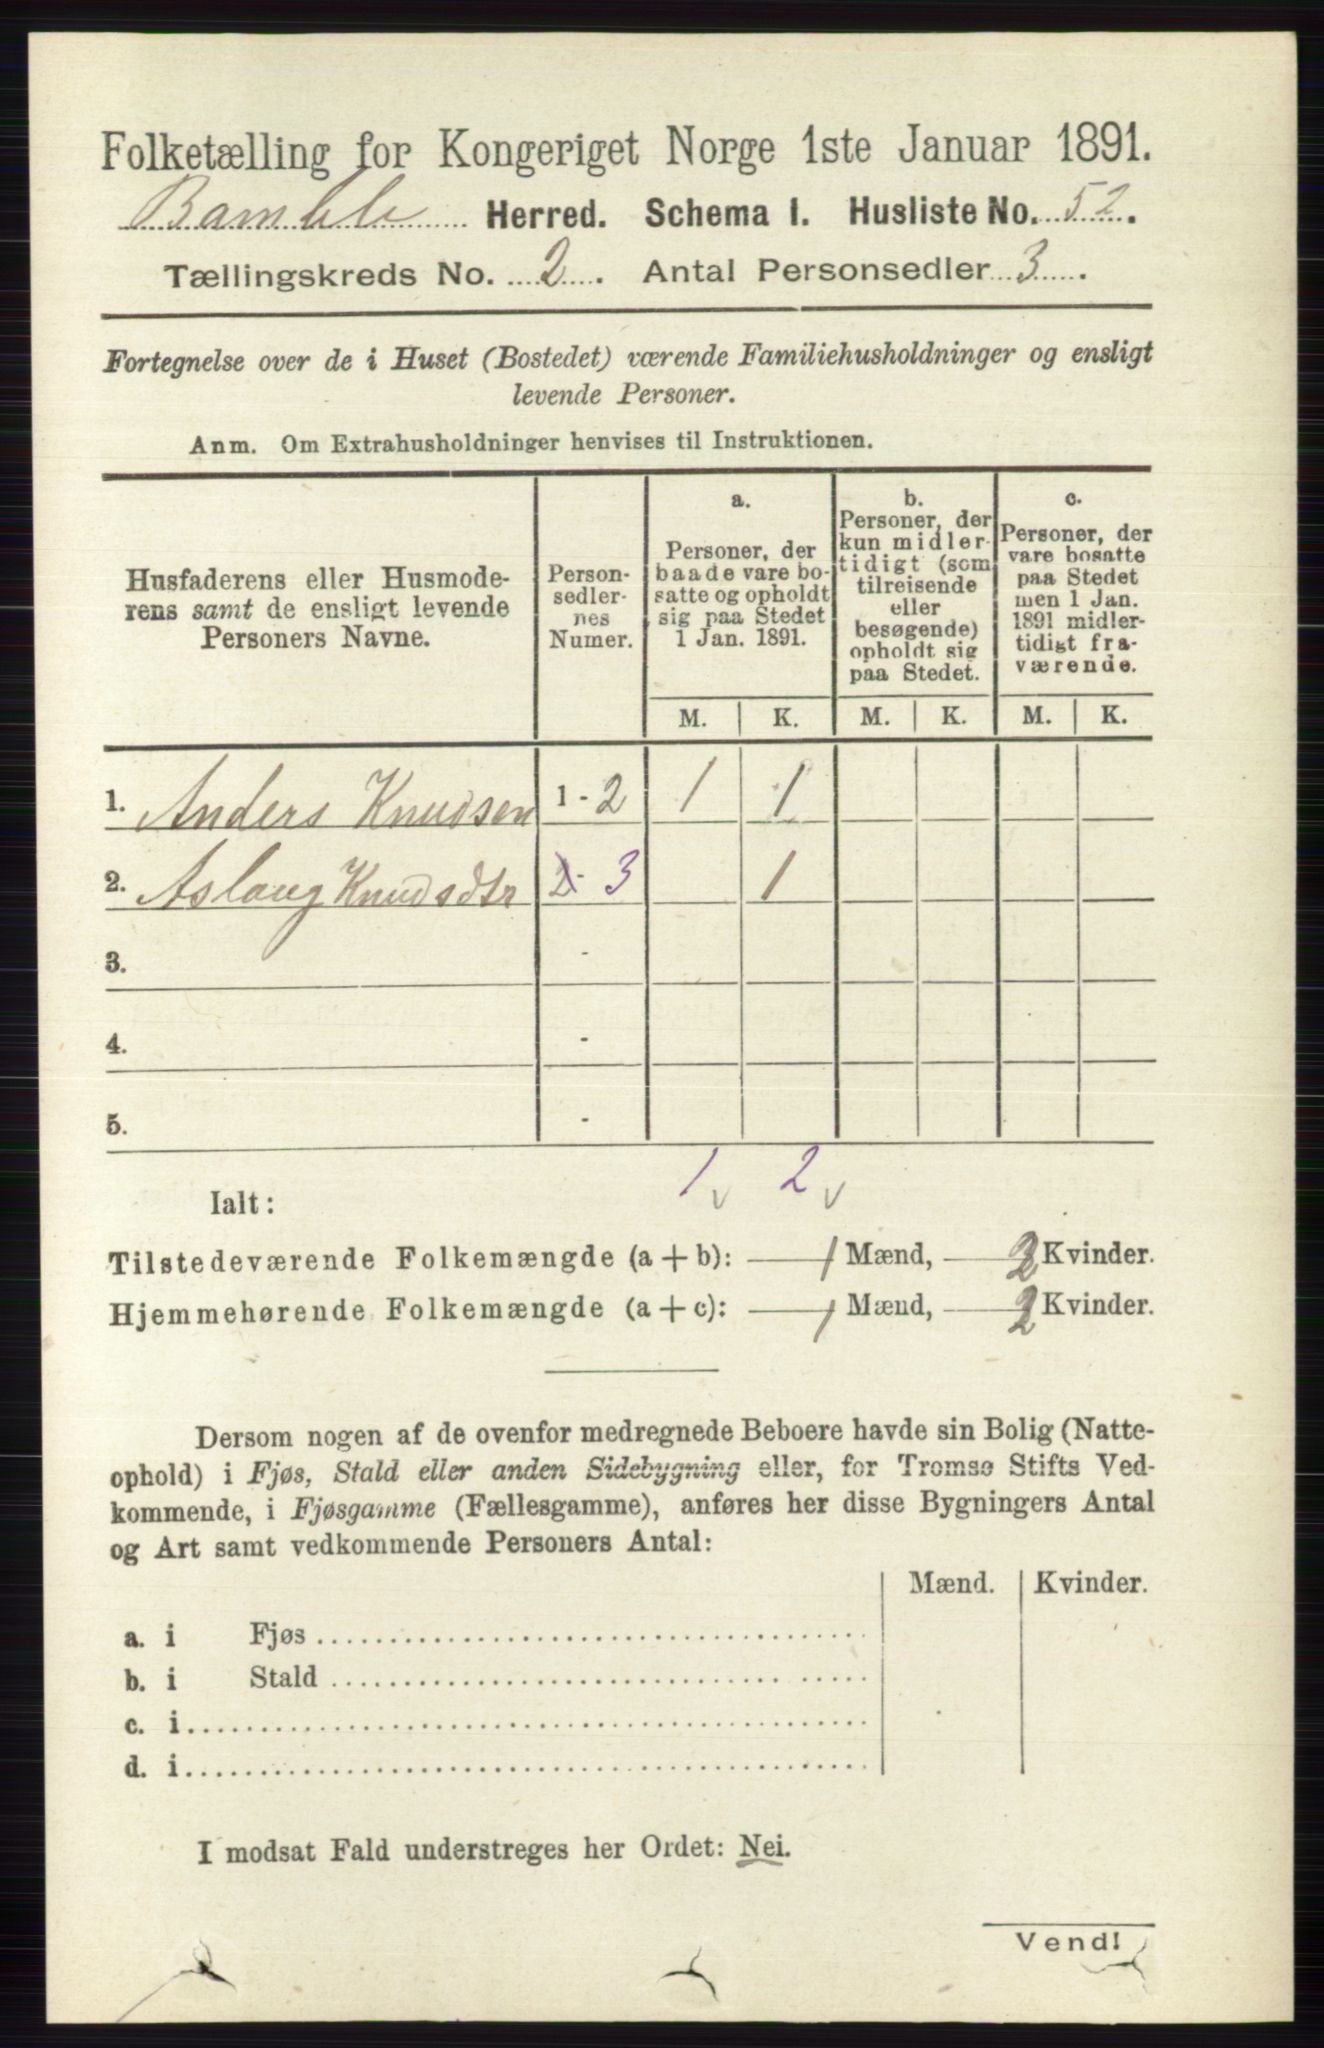 Folketælling for Kongeriget Norge 1ste Januar 1891.
Bamble Herred. Schema I. Husliste No. 52.
Tællingskreds No. 2. Antal Personsedler 3.
Fortegnelse over de i Huset (Bostedet) værende Familiehusholdninger og ensligt
levende Personer.
Anm. Om Extrahusholdninger henvises til Instruktionen.
Husfaderens eller Husmode-
rens samt de ensligt levende
Personers Navne.
Person-
sedler-
nes
Numer.
a.
Personer, der
baade vare bo-
satte og opholdt
sig paa Stedet
1 Jan. 1891.
b.
Personer, der
kun midler-
tidigt (som
tilreisende
eller
besøgende)
opholdt sig
paa Stedet.
c.
Personer, der
vare bosatte
paa Stedet
men 1 Jan.
1891 midler-
tidigt fra-
værende.
M. K. M. K. M. K.
1. Anders Knudsen 1 - 2 1 1
2. Aslaug Knudsdtr 2 - 3 1
3. -
4. -
5. -
1 v 2 v
Ialt:
Tilstedeværende Folkemængde (a + b): 1 Mænd, 2 Kvinder.
Hjemmehørende Folkemængde (a + c): 1 Mænd, 2 Kvinder.
Dersom nogen af de ovenfor medregnede Beboere havde sin Bolig (Natte-
ophold) i Fjøs, Stald eller anden Sidebygning eller, for Tromsø Stifts Ved-
kommende, i Fjøsgamme (Fællesgamme), anføres her disse Bygningers Antal
og Art samt vedkommende Personers Antal:
Mænd. Kvinder.
a. i Fjøs
b. i Stald
c. i
d. i
I modsat Fald understreges her Ordet: Nei.
Vend!